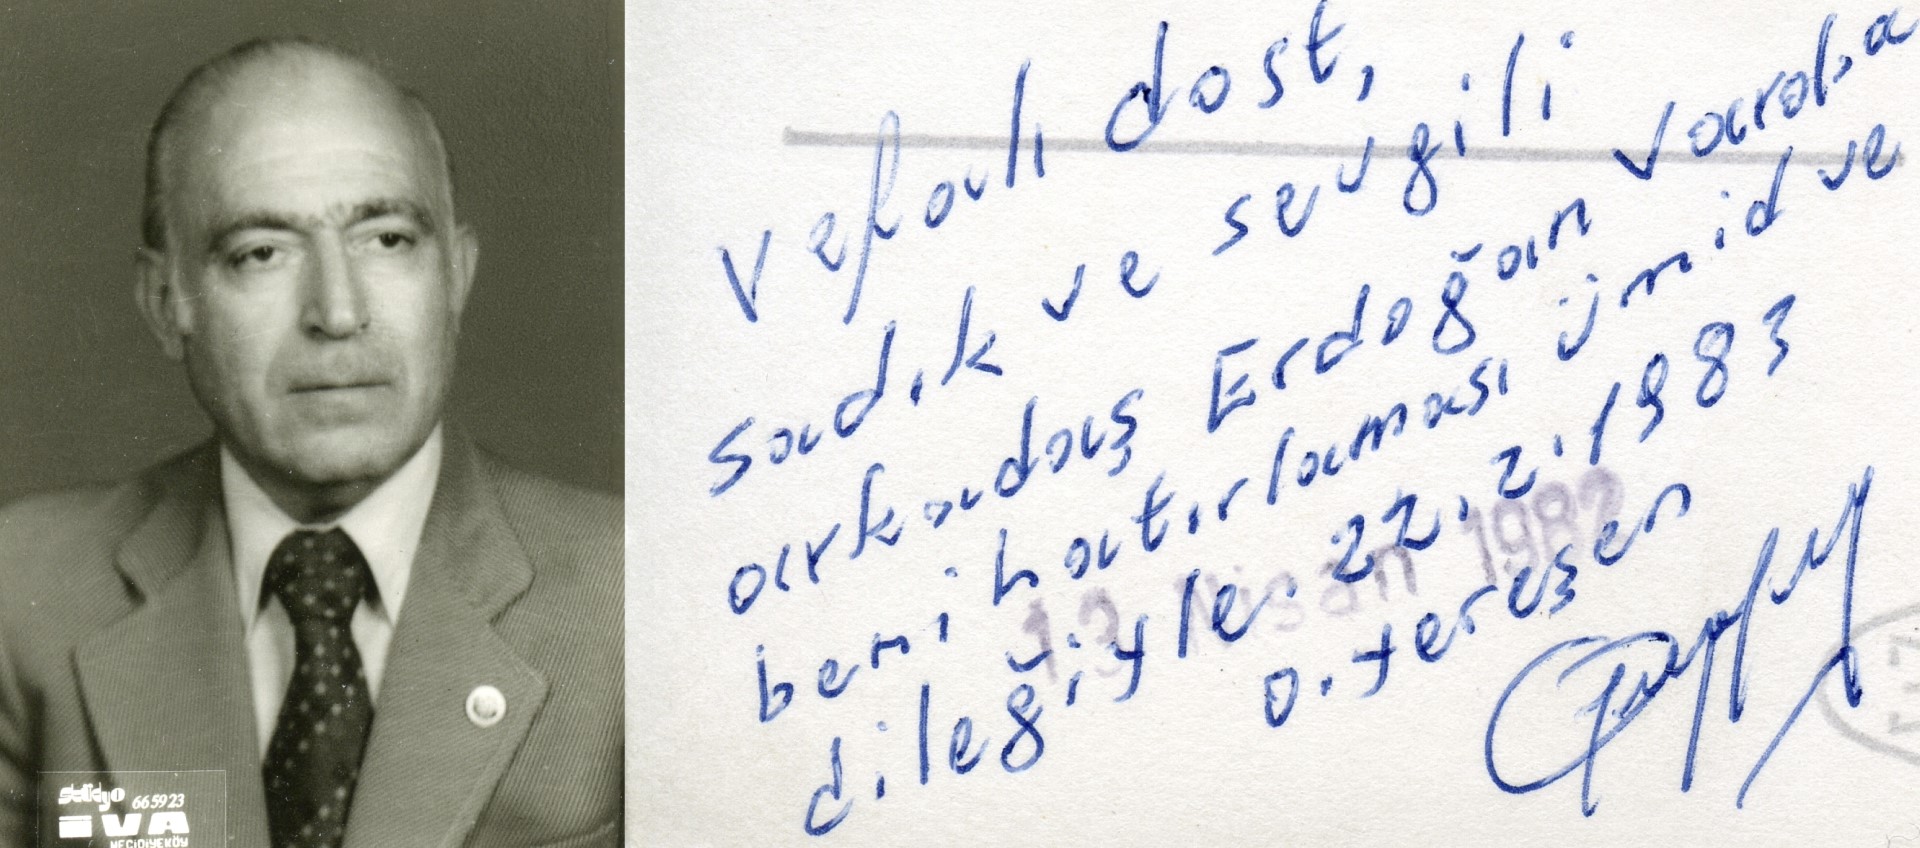 stüdyo 66 59 23
iVA
MECİDİYEKÖY
Vefalı dost,
sadık ve sevgili
arkadaş Erdoğan Varol'a
beni hatırlaması ümid ve
dileğiyle. 22.2.1983
13 Nisan 1982